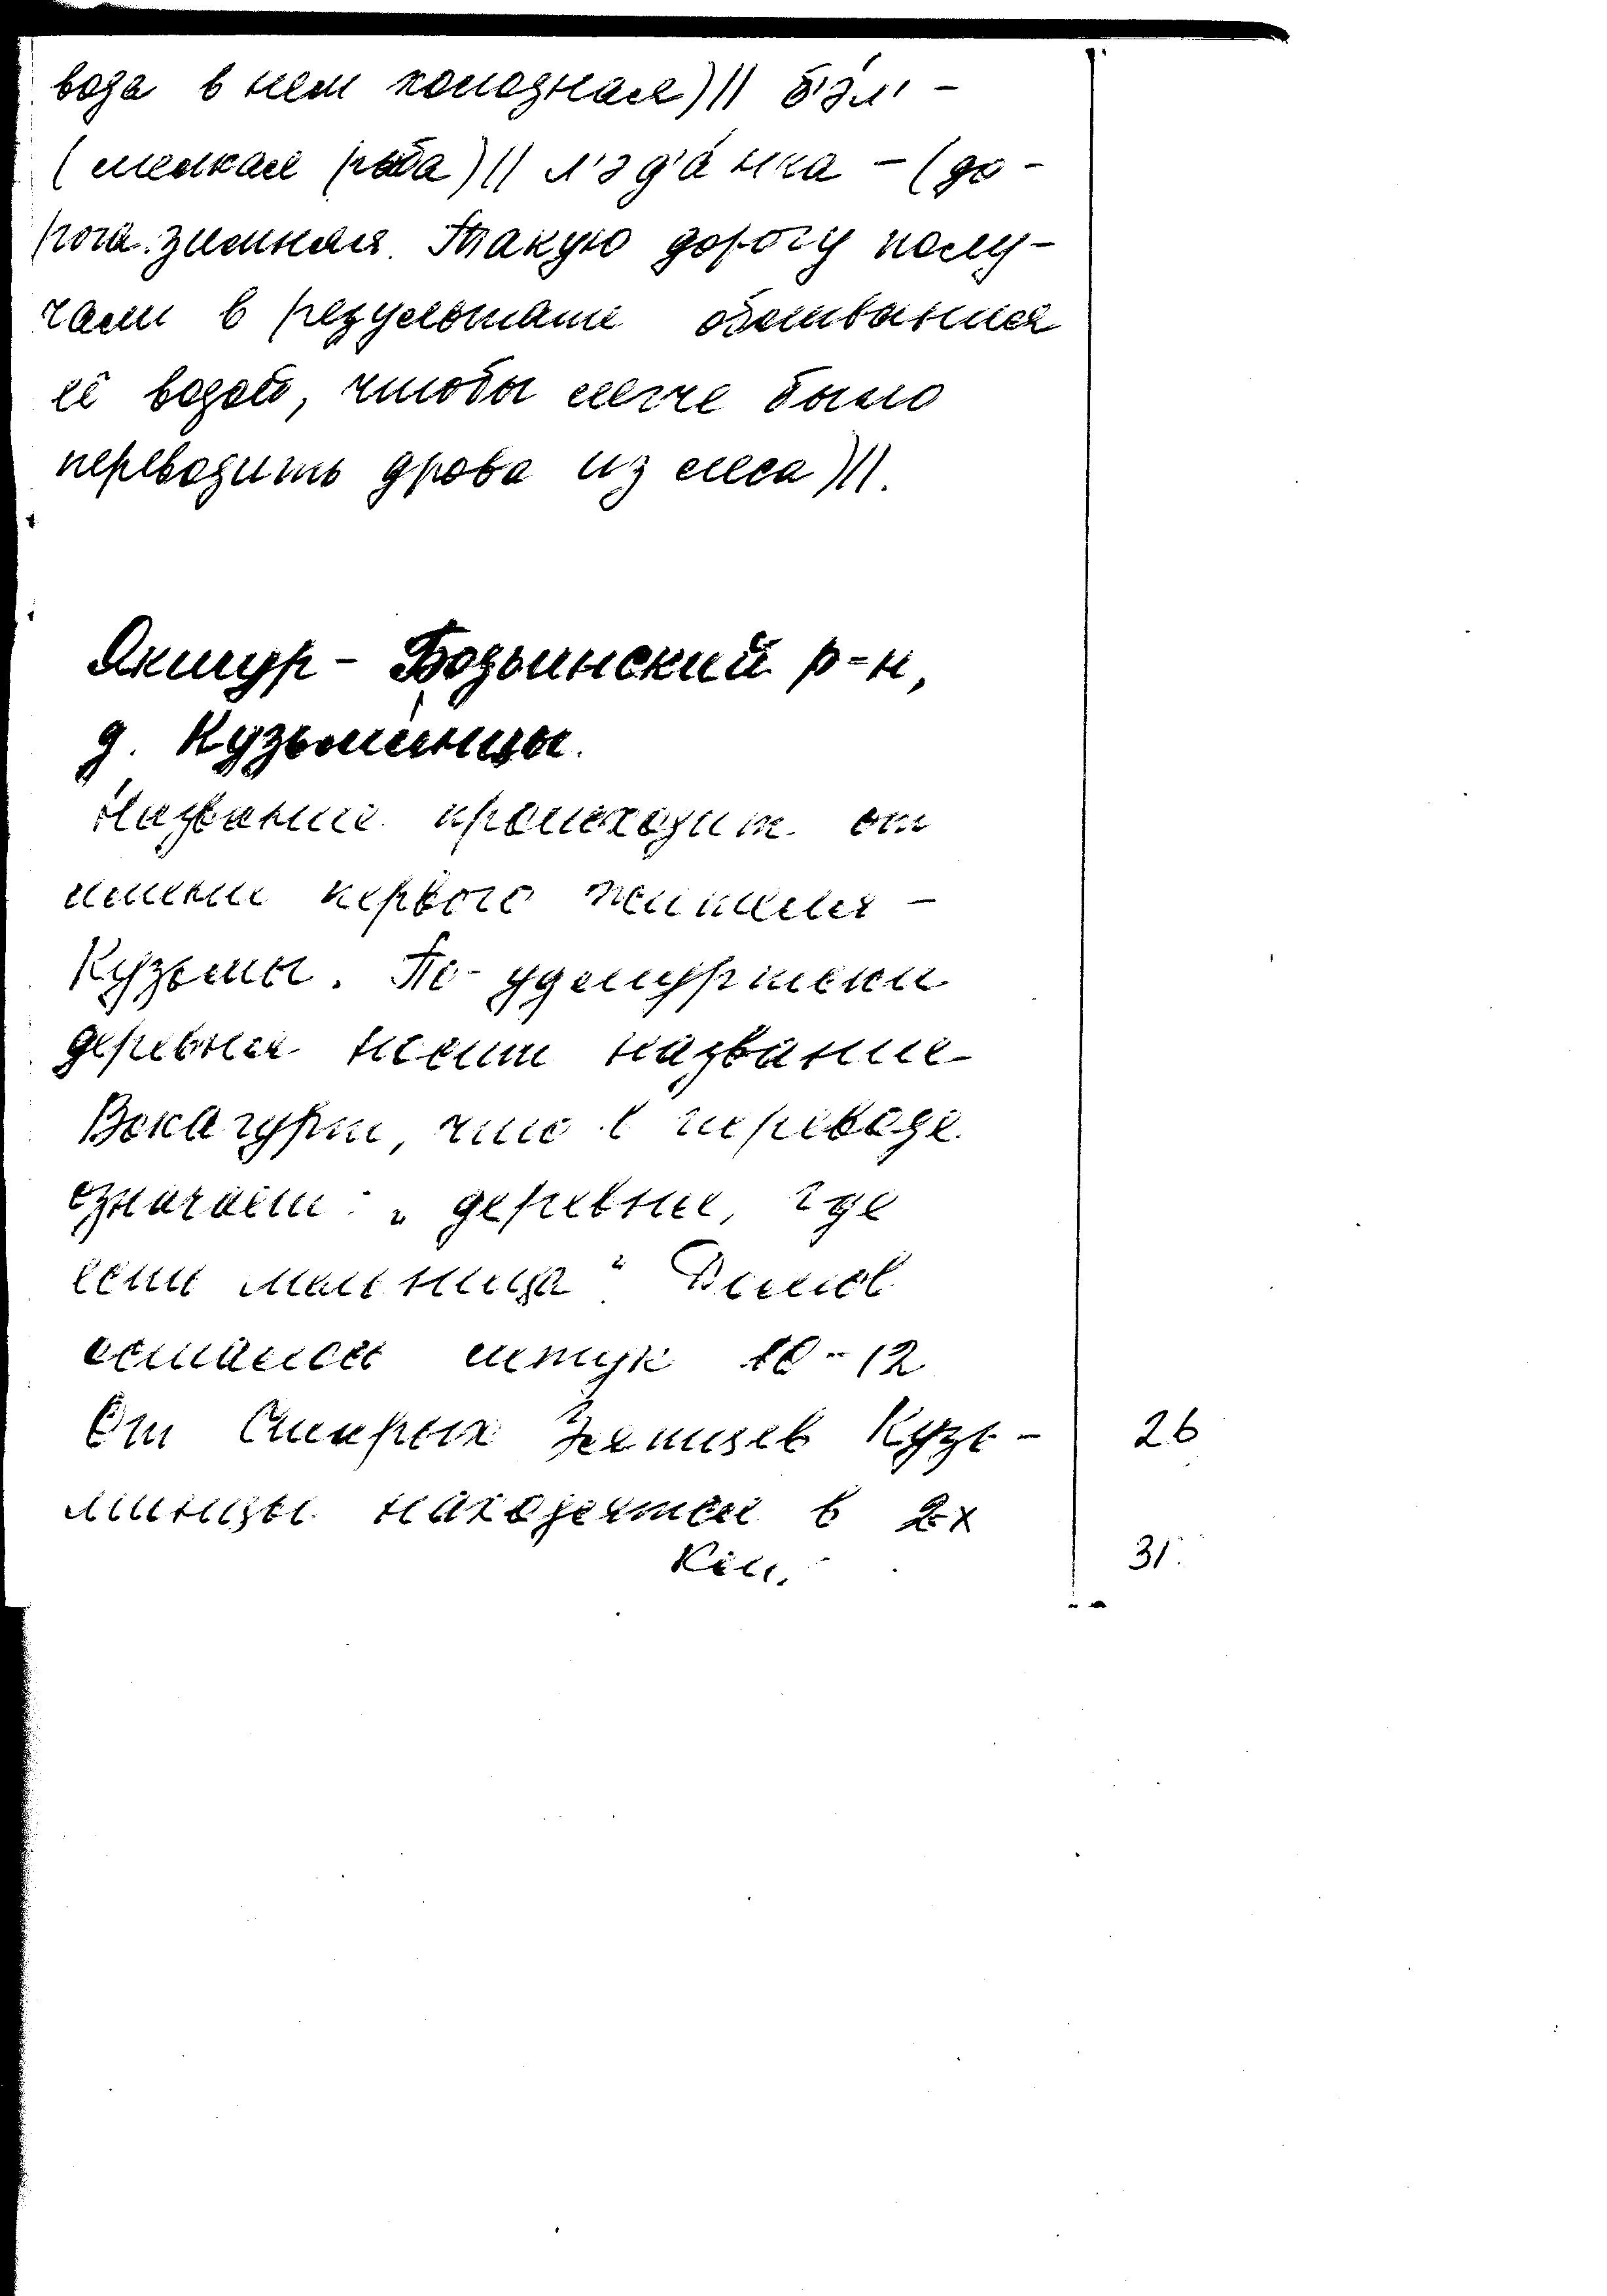 вода в нем холодная) || б'э́л' –
(мелкая рыба) || л'эд'а́нка – (до-
рога зимняя. Такую дорогу полу-
чали в результате обливания
её водой, чтобы легче было
переводить дрова из леса) ||.
Якшур-Бодьинский р-н,
д. Кузьминцы.
Название происходит от
имени первого жителя –
Кузьмы. По-удмуртски
деревня носит название
Вокагурт, что в переводе
означает: „деревня, где
есть мельница“. Домов
осталось штук 10-12
От Старых Зятцев Кузь-
26
минцы находятся в 2х
км.
31.